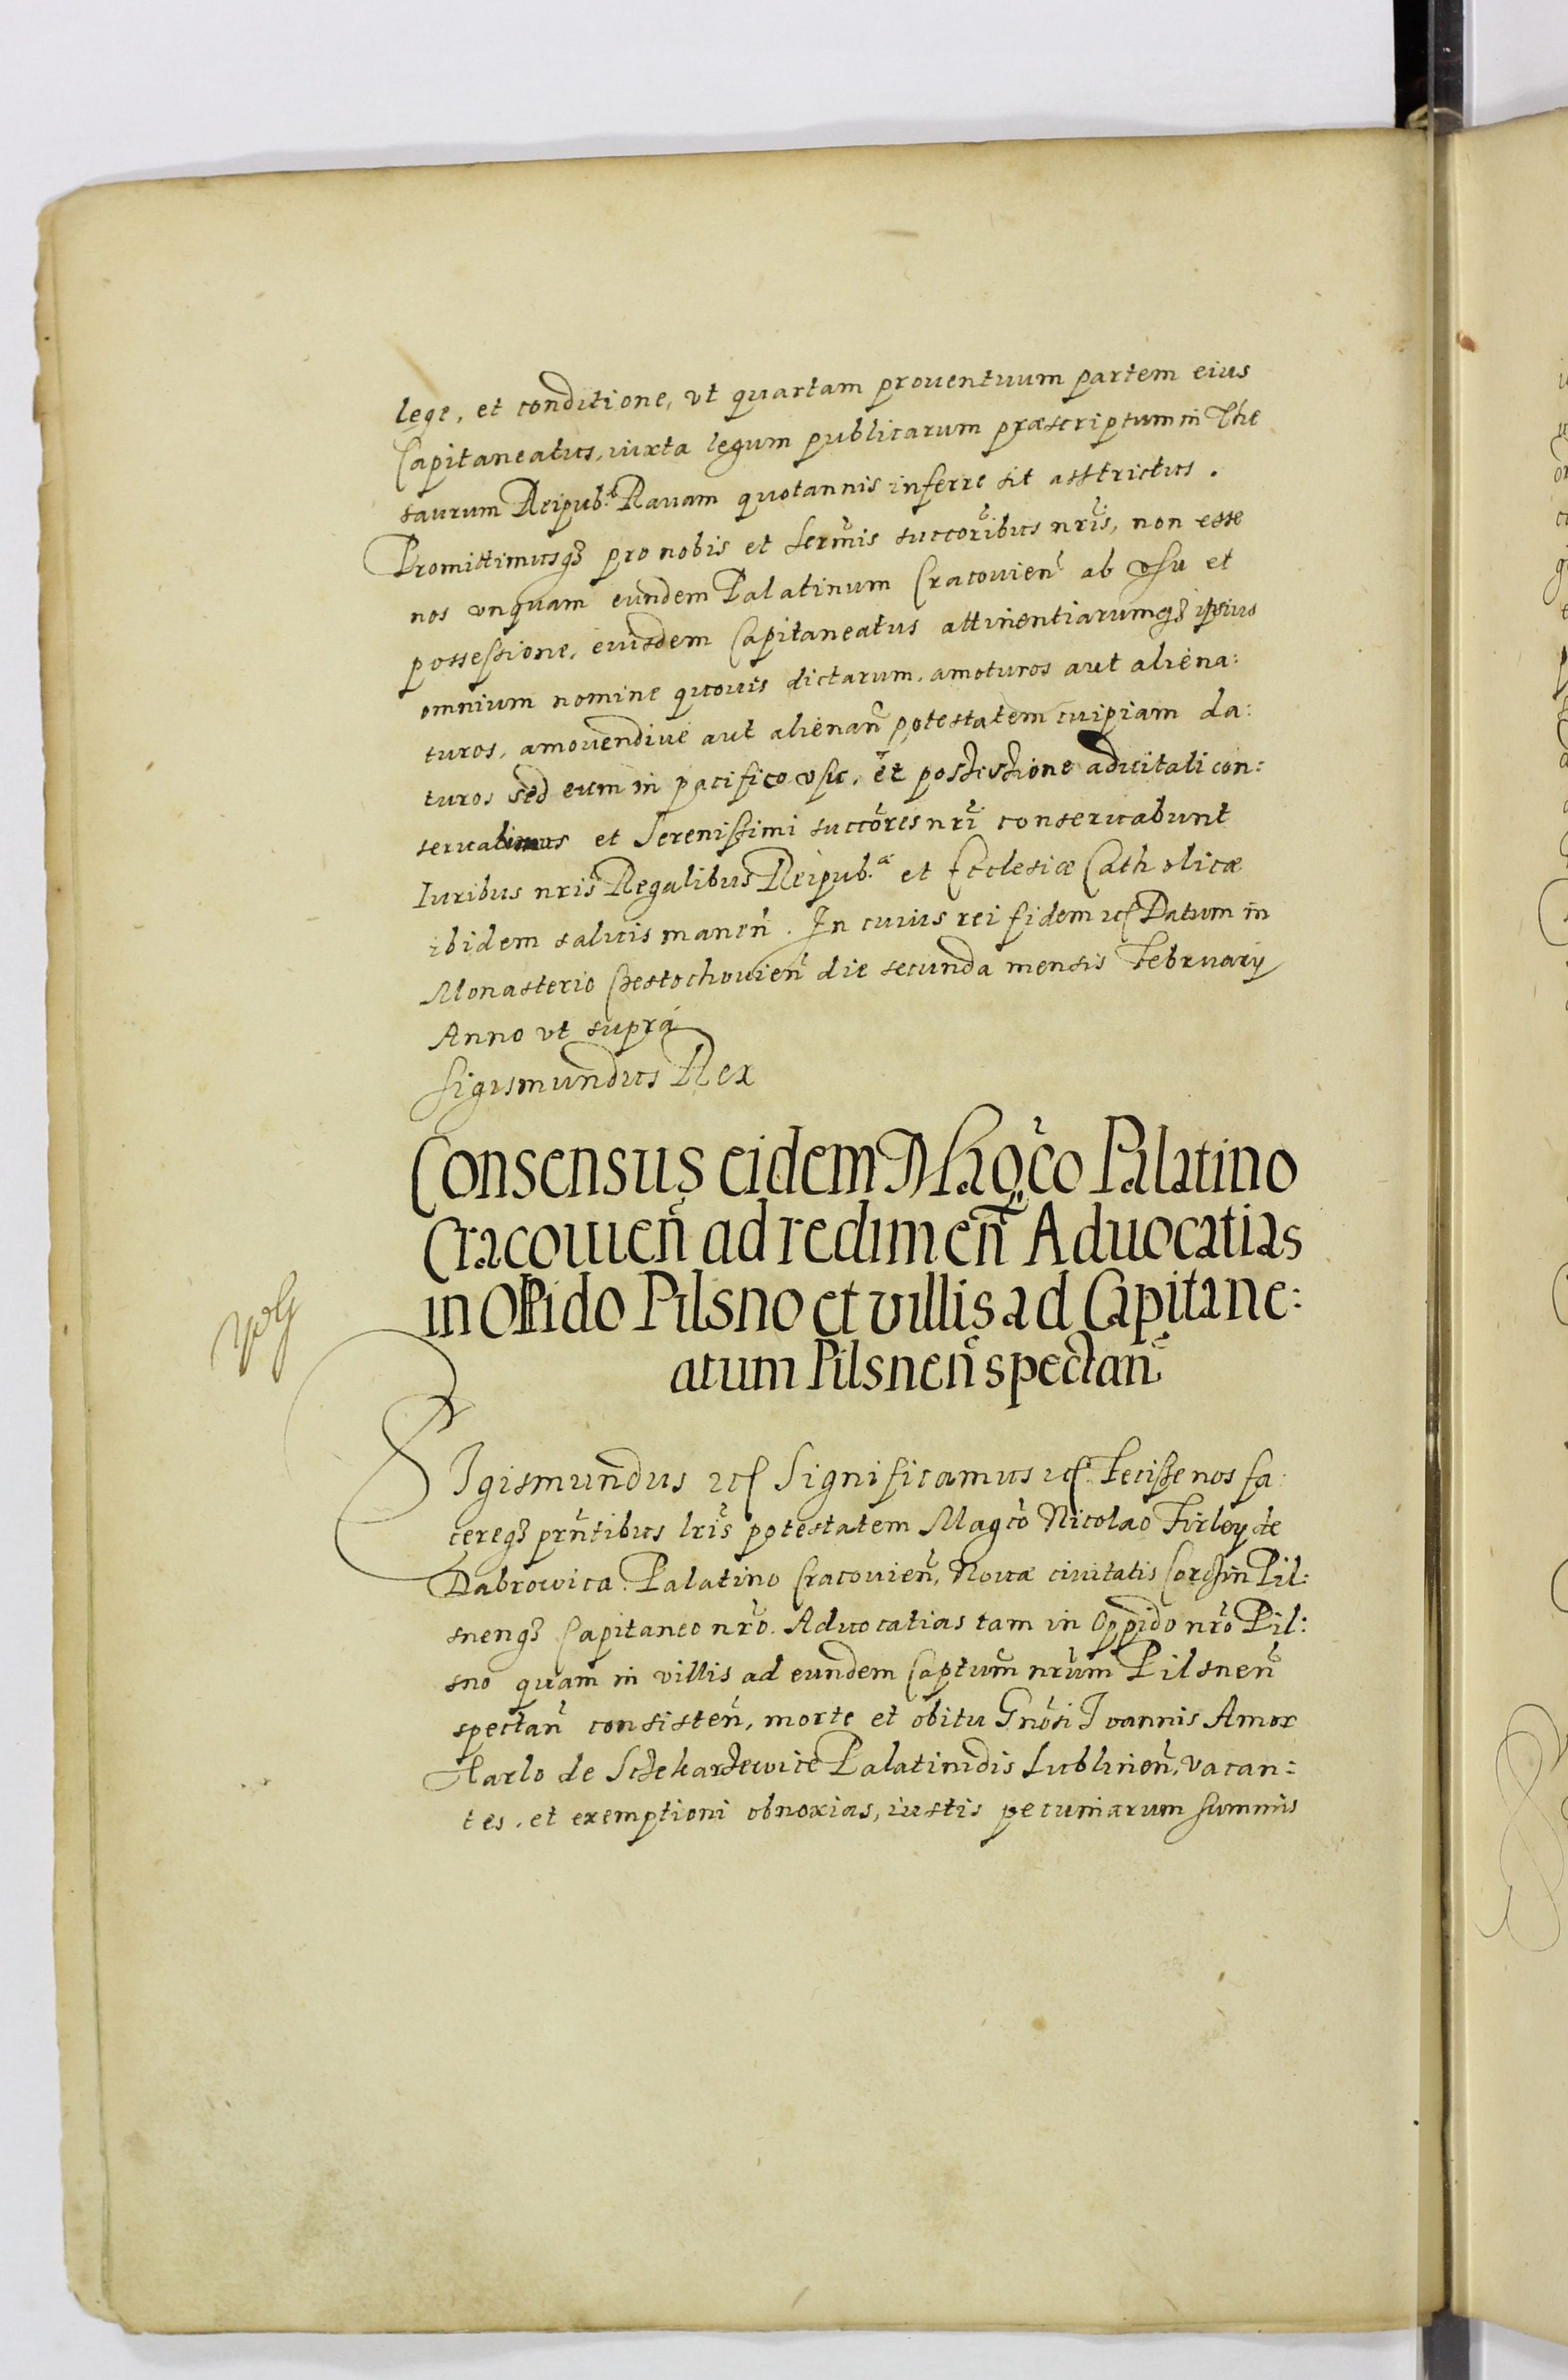 lege, et conditione, vt quartam prouentuum partem eius
Capitaneatus, iuxta legum publicarum præscriptum in The
saurum Reipub: Rauam quotannis inferre sit asstrictus.
Promittimusqꝫ pro nobis et Serm̃is succoribus nr̃is, non esse
nos vnquam eundem Palatinum Cracouien̄ ab vsu et
possessione, eiusdem Capitaneatus attinentiarumqꝫ ipsius
omnium nomine quouis dictarum, amoturos aut aliena:
turos, amouendiue aut alienan̄ potestatem cuipiam da:
turos sed eum in pacifico vsu, et possessione aduitali con:
seruabimus et Serenissimi succores nr̃i conseruabunt
Iuribus nr̃is Regalibus Reipub.æ et Ecclesiæ Catholicæ
ibidem saluis manen̄. In cuius rei fidem etc Datum in
Monasterio Czestochouien̄ die secunda mensis February
Anno vt supra
Sigismundus Rex
Consensus eidem Magc̃o Palatino
Cracouien̄ ad redimen̄ Aduocatias
in Oppido Pilsno et villis ad Capitane:
atum Pilsnen̄ spectan̄
SIgismundus etc Significamus etc. Fecisse nos fa
cereqꝫ prñtibus lr̃is potestatem Magc̃o Nicolao Firley de
Dabrowica Palatino Cracouien̄, Nouæ ciuitatis Corczin Pil:
snenqꝫ Capitaneo nr̃o. Aduocatias tam in Oppido nr̃o Pil:
sno quam in villis ad eundem Captum̄ nr̃um Pilsnen̄
spectan̄ consisten̄, morte et obitu Gnõsi Ioannis Amor
Tarlo de Sczekarzewice Palatinidis Lublinen̄, vacan:
tes, et exemptioni obnoxias, iustis pecuniarum summis